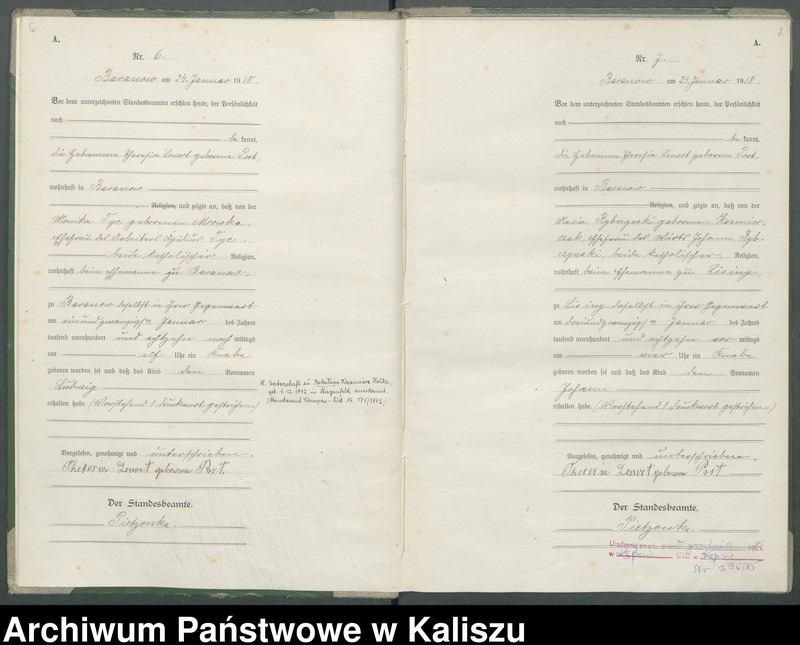 6
A.
Nr. 6.
Baranow am 24. Januar 1918.
Vor dem unterzeichneten Standesbeamten erschien heute, der Persönlichkeit
nach
be kannt,
die Hebamme Theresia Lenort geborene Post,
wohnhaft in Baranow
Religion, und zeigte an, daß von der
Monika Tyc geborenen
Ehefrau des Arbeiters Tyc,
beide katholischer Religion,
wohnhaft beim Ehemanne zu Baranow,
zu Baranow daselbst in ihrer Gegenwart
am einundzwanzigsten Januar des Jahres
tausend neunhundert und achtzehn nach mittags
um elf Uhr ein Knabe
geboren worden sei und daß das Kind den Vornamen
Ludwig
erhalten habe. (Vorstehend 1 Druckwort gestrichen)
Vorgelesen, genehmigt und unterschrieben.
Theresia Lenort geborene Post.
Der Standesbeamte.
Pietzonka.
geb. 6.12.1912 in anerkannt.
(Standesamt Kempen
7
A.
Nr. 7.
Baranow am 24. Januar 1918.
Vor dem unterzeichneten Standesbeamten erschien heute, der Persönlichkeit
nach
be kannt,
die Hebamme Theresia Lenort geborene Post,
wohnhaft in Baranow
Religion, und zeigte an, daß von der
Maria geborenen
Ehefrau des Wirts Johann Ryb-
czynski, beide katholischer Religion,
wohnhaft beim Ehemanne zu Lising,
zu Lising daselbst in ihrer Gegenwart
am dreiundzwanzigsten Januar des Jahres
tausend neunhundert und achtzehn vor mittags
um vier Uhr ein Knabe
geboren worden sei und daß das Kind den Vornamen
Johann
erhalten habe. (Vorstehend 1 Druckwort gestrichen)
Vorgelesen, genehmigt und unterschrieben.
Theresia Lenort geborene Post
Der Standesbeamte.
Pietzonka.
w USC w Kępno
Nr 396/85
Archiwum Państwowe w Kaliszu